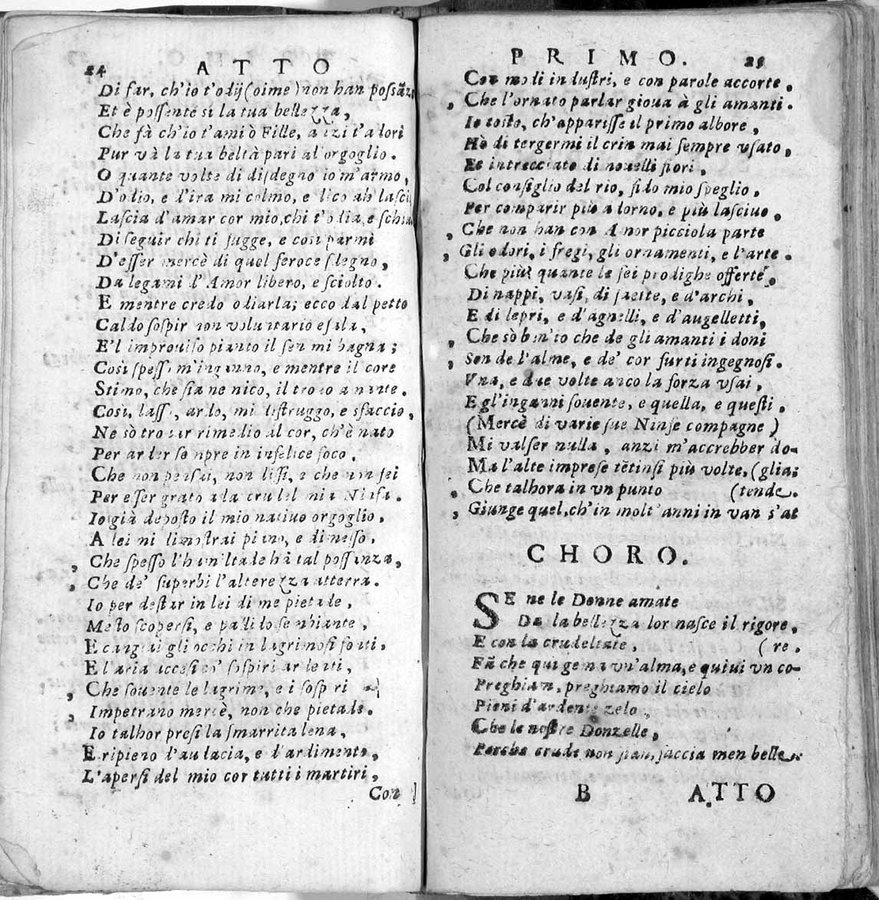 24 ATTO
Di far, ch'io t'odij (oime) non han possãza
Et è possente sì la tua bellezza,
Che fà ch'io t'ami ò Fille, anzi t'adori
Pur và la tua beltà pari al'orgoglio.
O quante volte di disdegno io m'armo,
D'odio, e d'ira mi colmo, e dico ah lascia
Lascia d'amar cor mio, chi t'odia, e schiua
Di seguir chi ti fugge, e con parmi
D'esser mercè di quel feroce sdegno,
Da legami d'Amor libero, e sciolto.
E mentre credo odiarla; ecco dal petto
Caldo sospir non voluntario esala,
E'l improuiso pianto il sen mi bagna;
Così spesso m'inganno, e mentre il core
Stimo, che sia nemico, il trouo amante.
Così, lasso, ardo, mi distruggo, e sfaccio,
Ne sò trouar rimedio al cor, ch'è nato
Per arder sempre in infelice foco.
Che non pensai, non dissi, e che non fei
Per esser grato ala crudel mia Ninfa.
Io già deposto il mio natiuo orgoglio,
A lei mi dimostrai piano, e dimesso.
„ Che spesso l'humiltade hà tal possanza,
„ Che de' superbi l'alterezza atterra.
Io per destar in lei di me pietade,
Mesto scopersi, e pallido sembiante,
E cangiai gli occhi in lagrimosi fonti,
E l'aria accesi co' sospiri ardenti,
„ Che souente le lagrime, e i sospiri
„ Impetrano mercè, non che pietade.
Io talhor presi la smarrita lena,
E ripieno d'audacia, e d'ardimento,
L'apersi del mio cor tutti i martiri,
Con
PRIMO. 25
Con modi industri, e con parole accorte,
„ Che l'ornato parlar gioua à gli amanti.
Io tosto, ch'apparisse il primo albore,
Hò di tergermi il crin mai sempre vsato,
Et intrecciato di nouelli fiori,
Col consiglio del rio, fido mio speglio,
Per comparir più adorno, e più lasciuo,
„ Che non han con Amor picciola parte
„ Gli odori, i fregi, gli ornamenti, e l'arte.
Che più? quante le fei prodighe offerte,
Di nappi, vasi, di saette, e d'archi,
E di lepri, e d'agnelli, e d'augelletti,
„ Che sò ben'io che de gli amanti i doni
„ Son de l'alme, e de' cor furti ingegnosi.
Vna, e due volte anco la forza vsai,
E gl'inganni souente, e quella, e questi.
(Mercè di varie sue Ninfe compagne)
Mi valser nulla, anzi m'accrebber do-
Ma l'alte imprese tētinsi più volte, (glia;
„ Che talhora in vn punto (tende.
„ Giunge quel, ch'in molt'anni in van s'at
CHORO.
SE ne le Donne amate
Da la bellezza lor nasce il rigore,
E con la crudeltate, (re.
Fã che qui gema vn'alma, e quiui vn co-
Preghiam, preghiamo il cielo
Pieni d'ardente zelo,
Che le nostre Donzelle,
Perche crude non sian, faccia men belle.
B ATTO